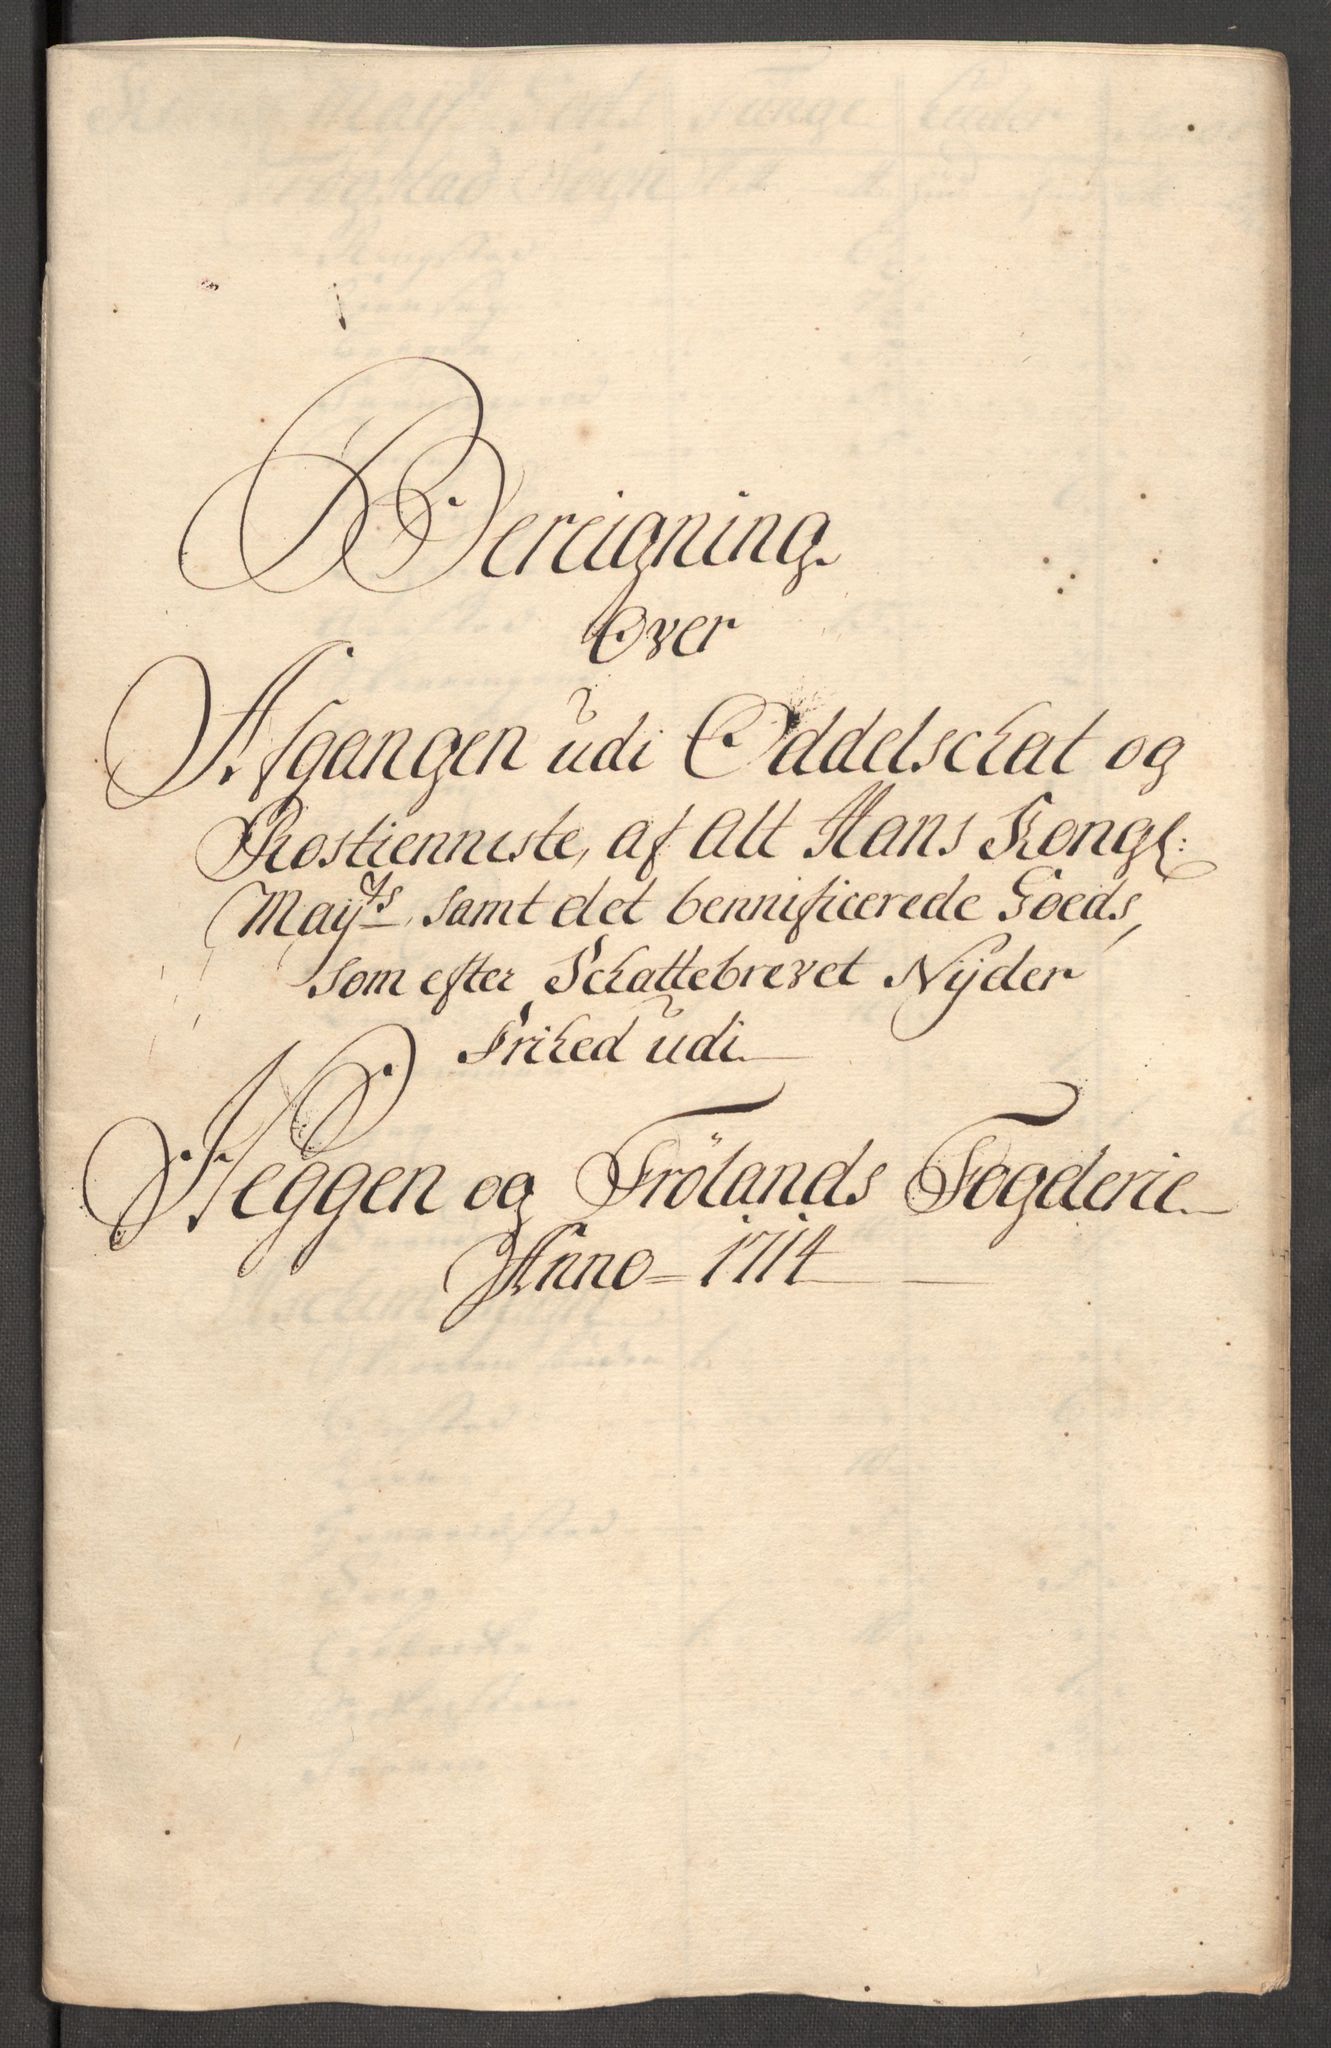 Bereigning
Over
Afgangen udi Oddelschat og
Rostienniste, af Alt Hans Kongl:
Mayts samt det bennificerede Goeds,
som efter Schattebrevet Nyder
Frihed udi
Heggen og Frölands Fogderie
Anno 1714